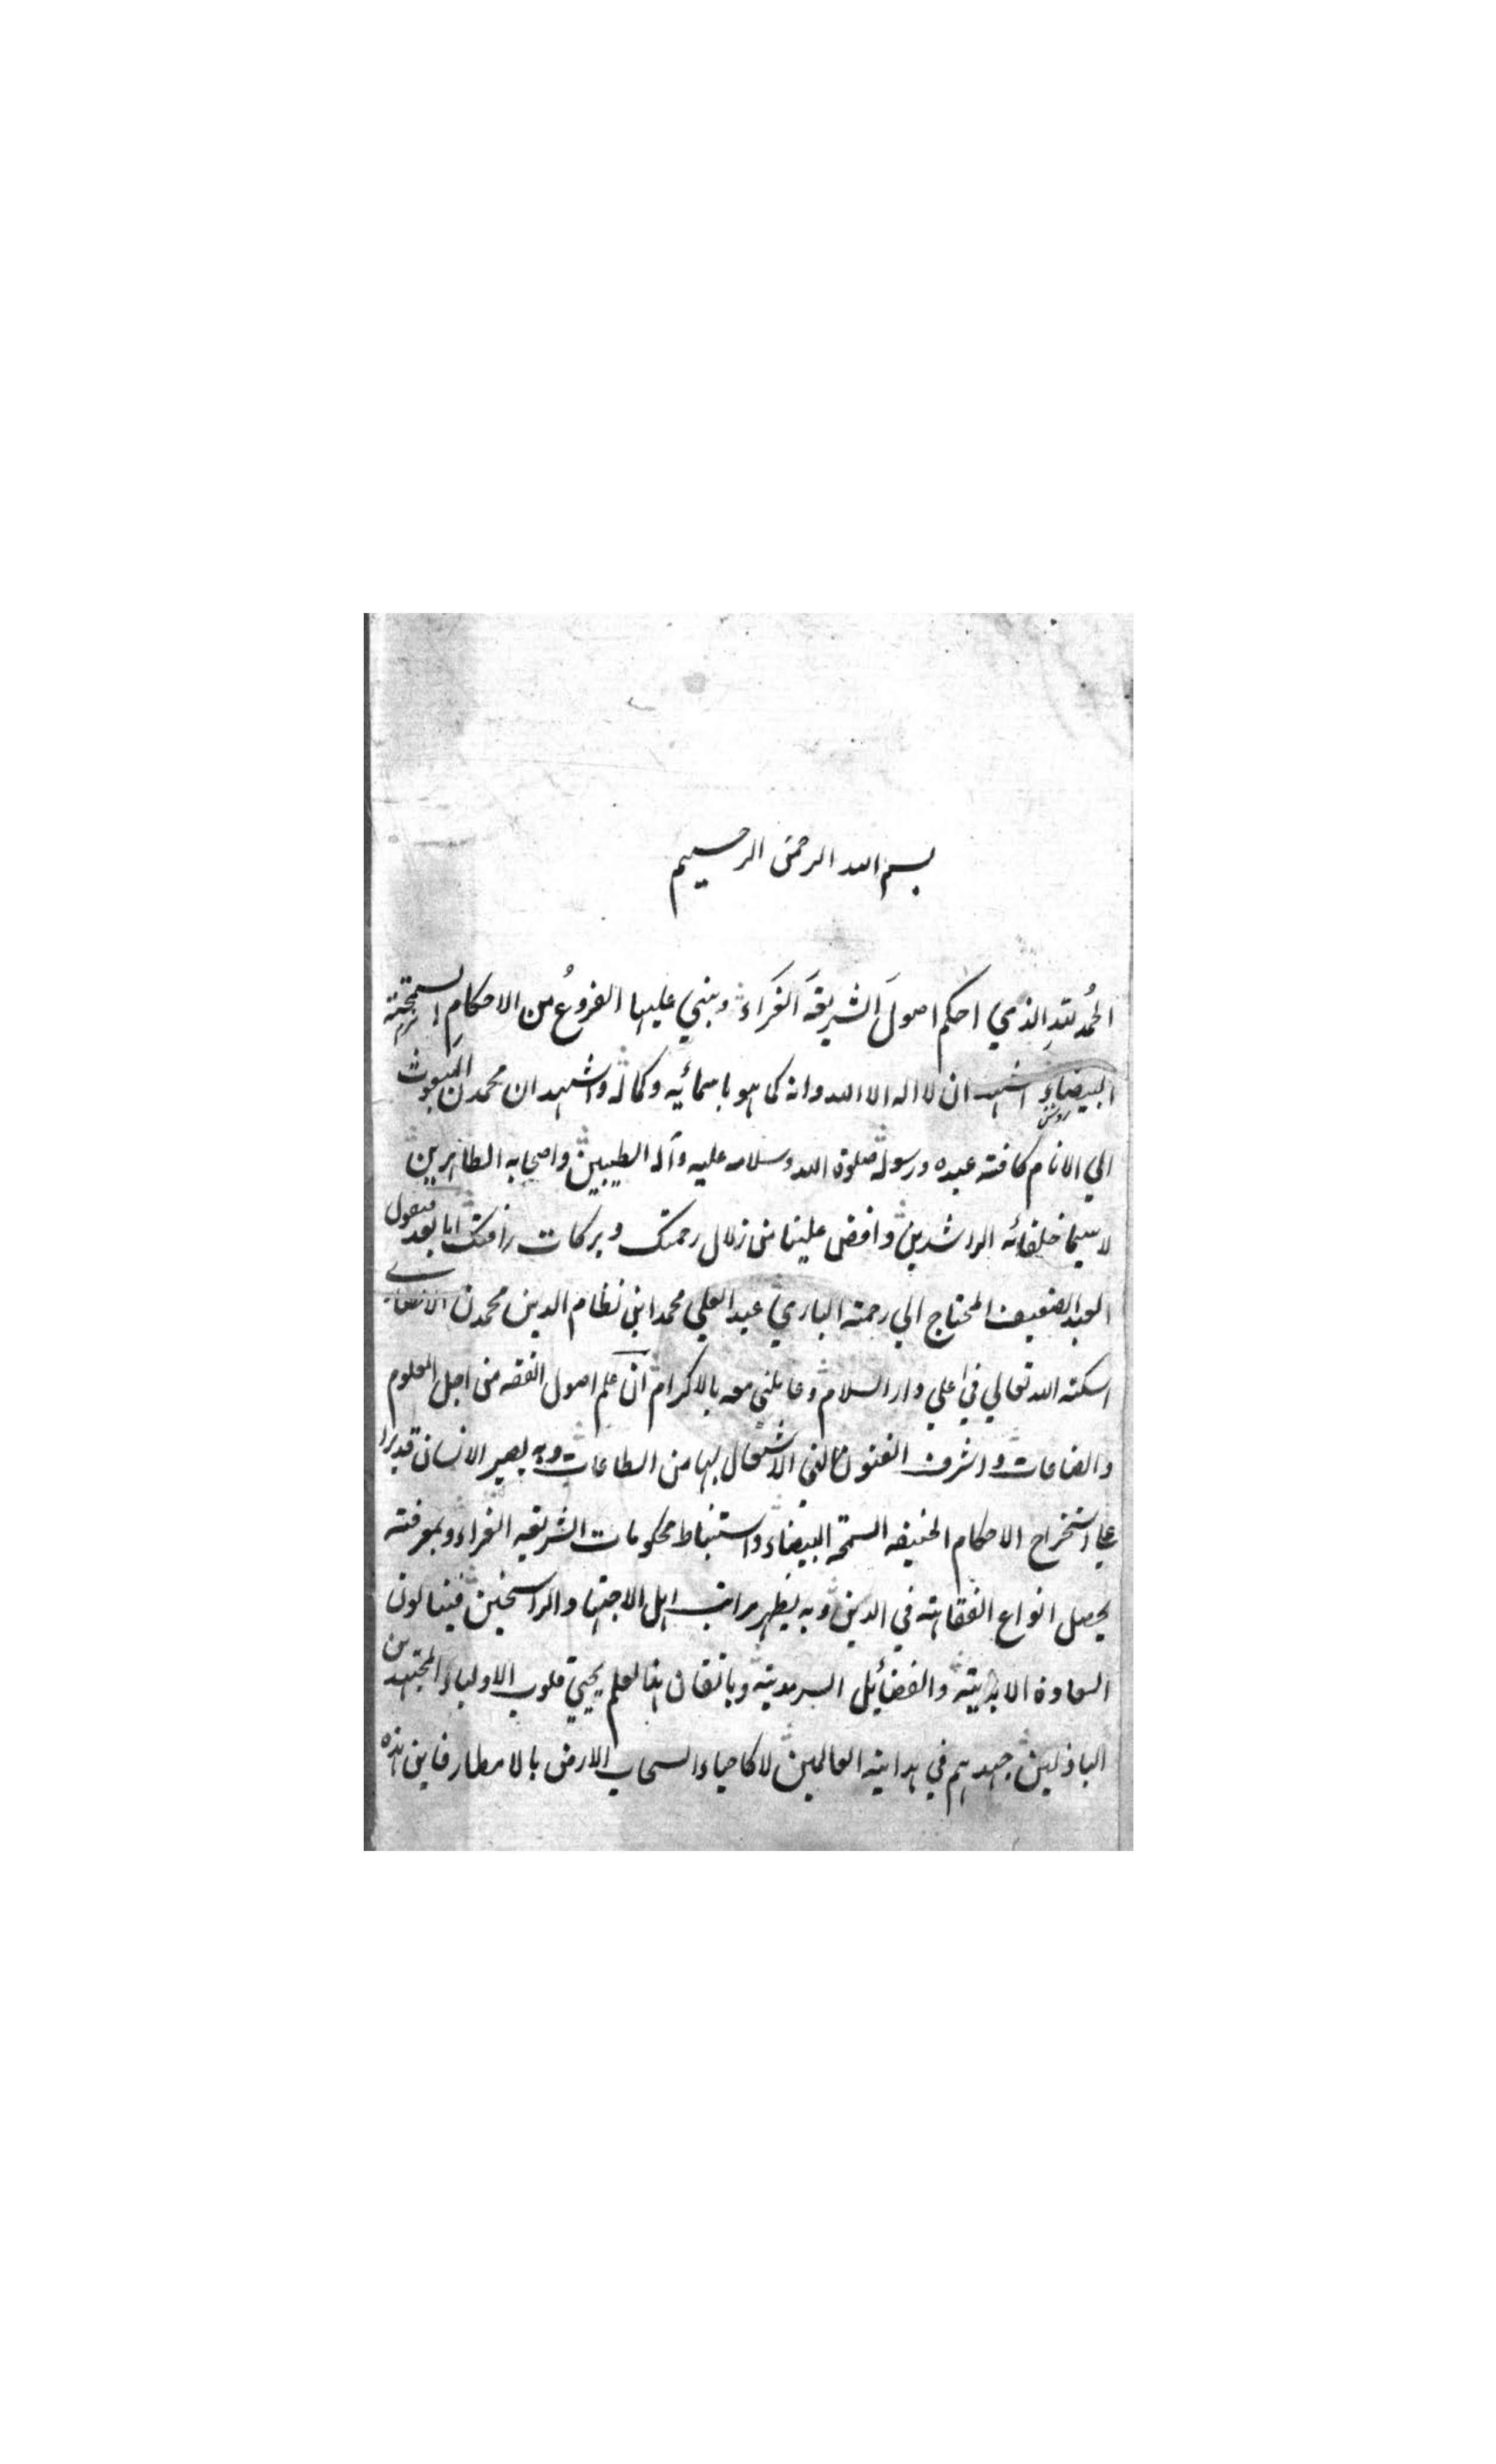 بسم الله الرحمن الرحيم
الحمد لله الذي احكم اصول الشريعة الغراء وبني عليها الفروع من الاحكام السمحة
البيضاء اشهد ان لا اله الا الله وانه كما هو باسمائه وكماله واشهد ان محمدن المبعوث
الي الانام كافته عبده ورسوله صلوة الله وسلامه عليه وآله الطيبين واصحابه الطاهرين
لا سيما خلفائه الراشدين وافض علينا من زلال رحمتك وبركات رافتك اما بعد فيقول
العبد الضعيف المحتاج الي رحمة الباري عبد العلي محمد ابن نظام الدين محمدن الانصاري
اسكنه الله تعالي في اعلي دار السلام وعاملني معه بالاكرام ان علم اصول الفقه من اجل العلوم
والصناعات واشرف الفنون التي الاشتغال بها من الطاعات وبه يصير الانسان قديرا
علي استخراج الاحكام الحنيفه السمحة البيضاء واستنباط محكومات الشريعه الغراء وبمعرفته
يحصل انواع الفقاهة في الدين وبه يظهر مراتب اهل الاجتها والراسخين فينالون
السعادة الابدية والفضائل السرمدية وباتقان هذا لعلم يحيي قلوب الاولياء المجتهدين
الباذلين جهدهم في هداية العالمين لا كاحياء السحاب الارض بالامطار فاين هذه